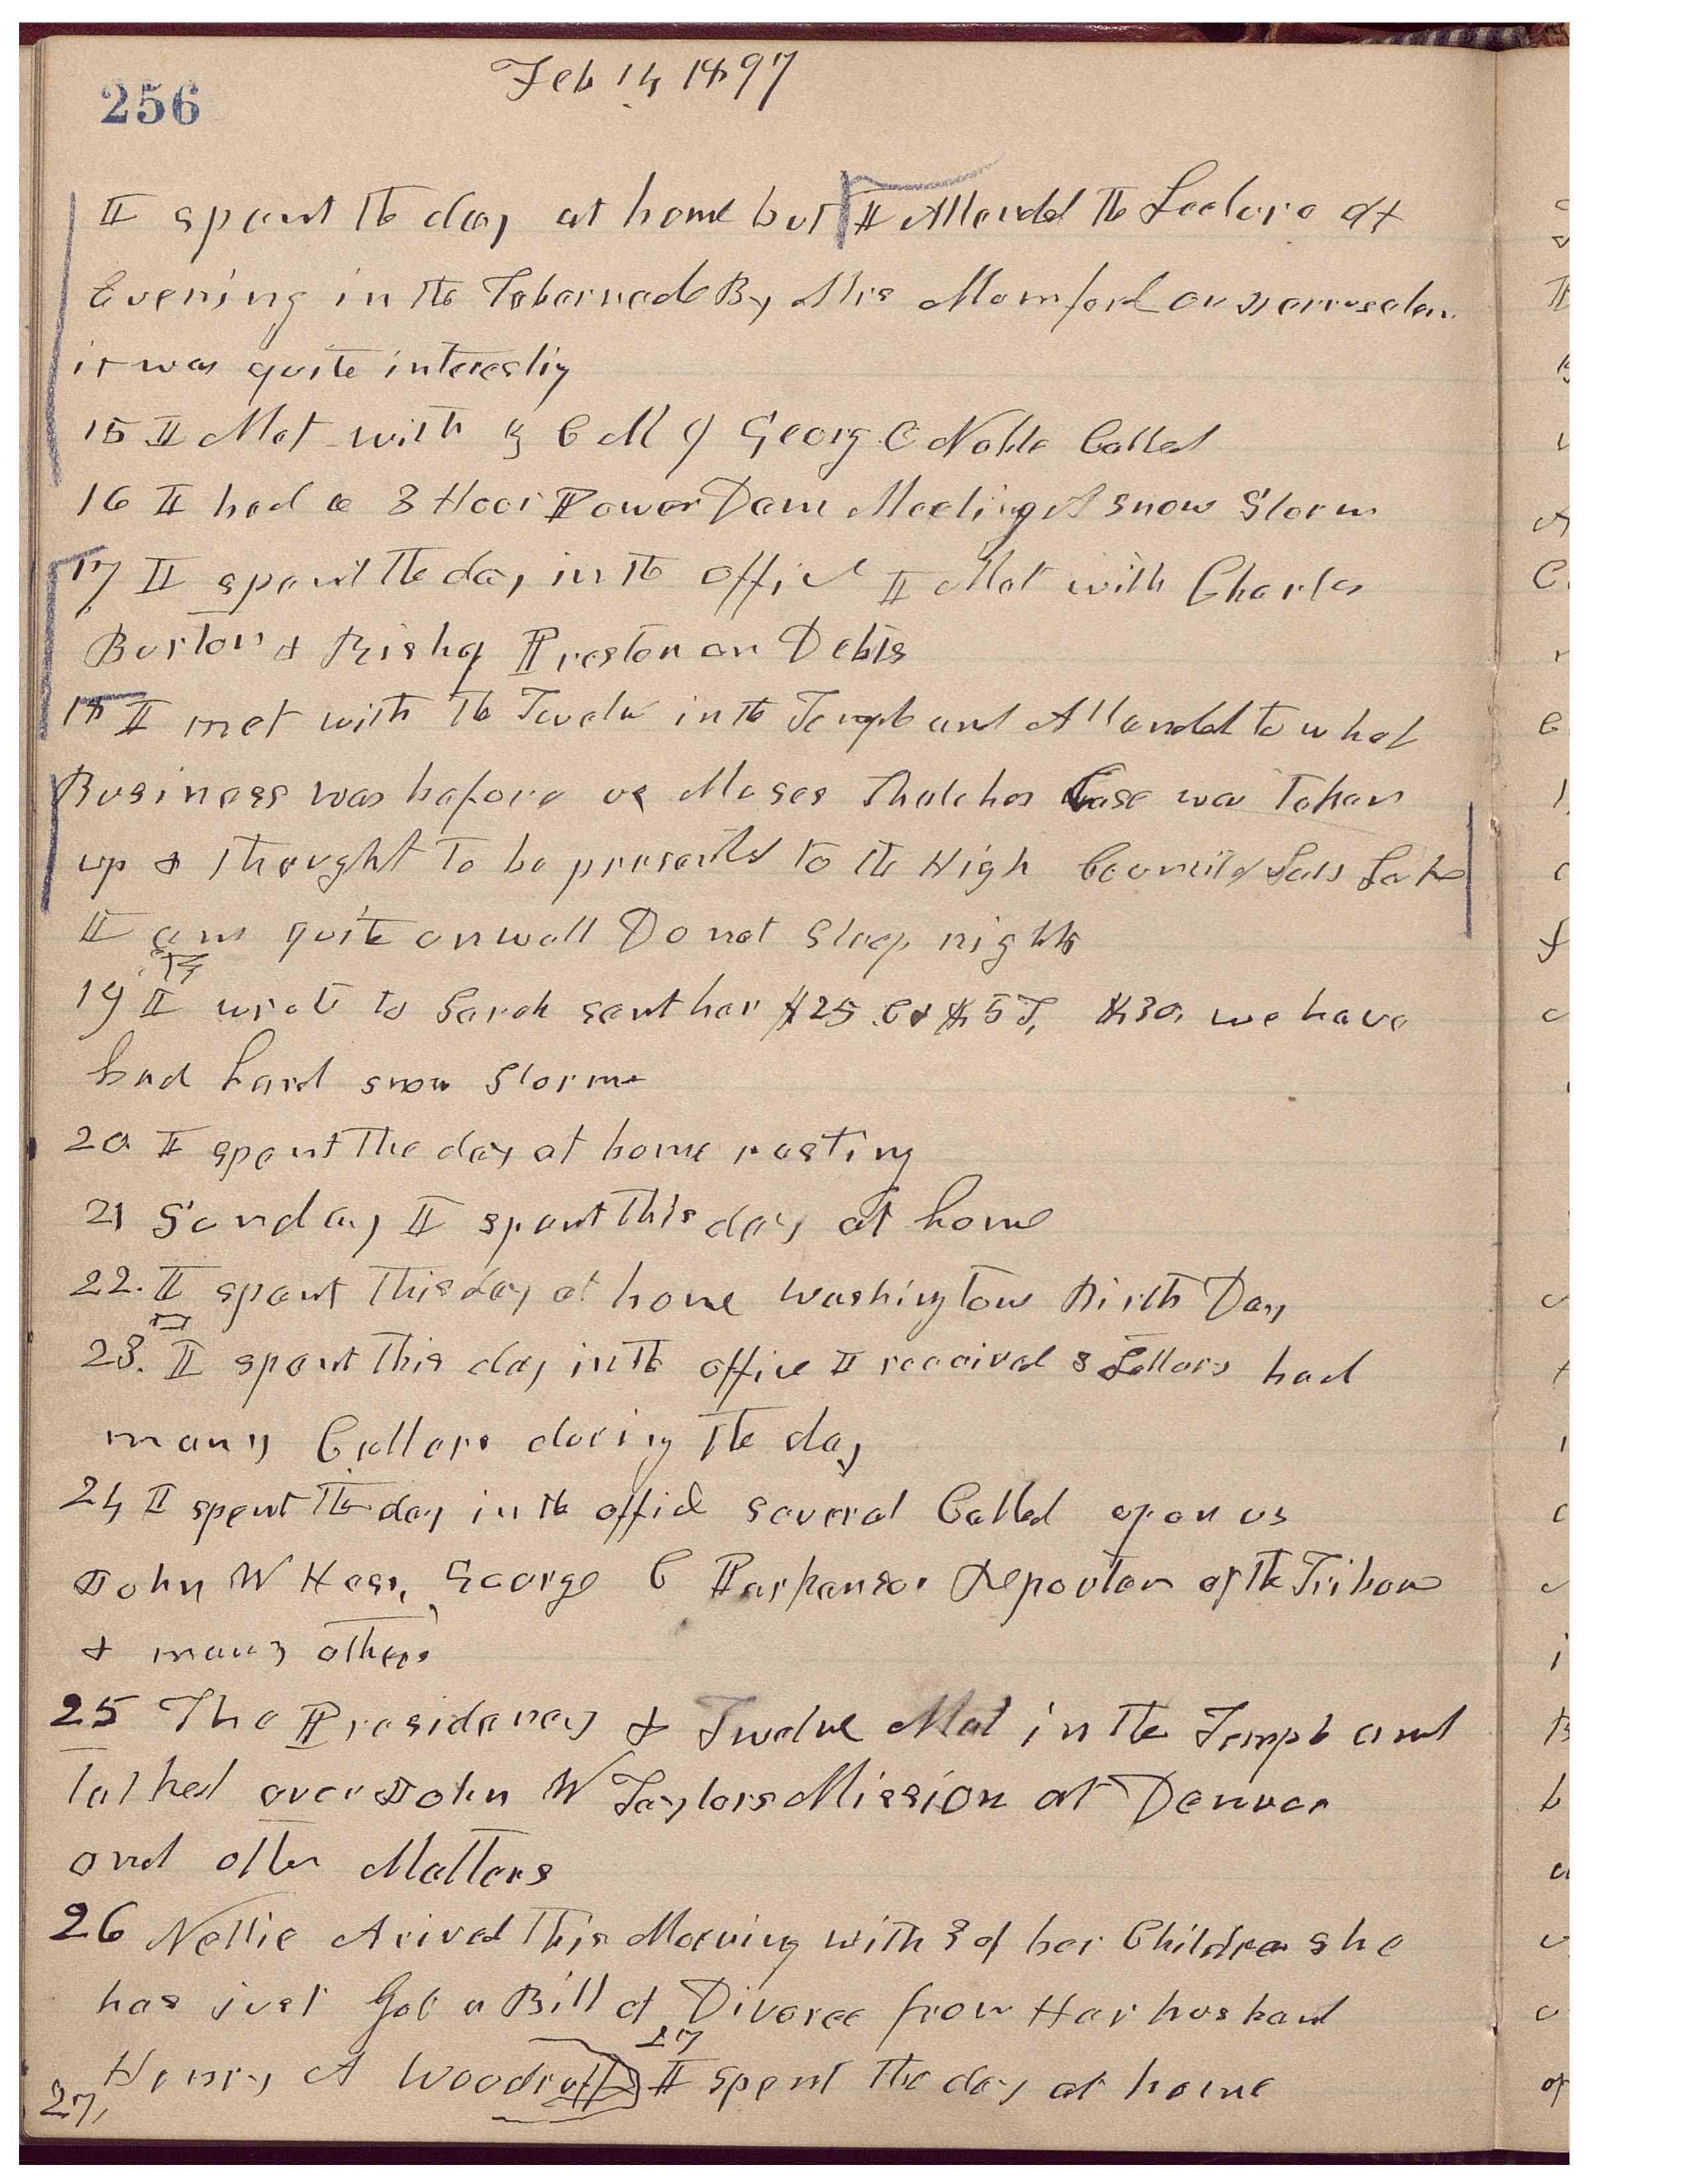 256
Feb 14 1897
I spent the day at home but I Attended the Lecture at
Evening in the Tabernacle By Mrs Momford on Jerrusalem
it was quite interesting
15 I Met with Georg C Noble Called
16 I had a 3 Hour Power Dam Meeting A snow Storm
17 I spent the day in the office I Met with Charles
Burton & Bishop Preston on Debts
18 I met with the Twelve in the Temple and Attended to what
Business was before us Moses Thatcher Case was Taken
up & thought to be presented to the High Council of Salt Lake
I am quite unwell Do not Sleep nights
19 I wrote to Sarah sent her $25 C & $5 T, $30, we have
had hard snow Storms
20 I spent the day at home resting
21 Sunday I spent this day at home
22. I spent this day at home Washington Birth Day
23. I spent this day in the office I received 3 Letters had
many Callers during the day
24 I spent the day in the office several Called upon us
John W Hess, George C Parkenson Reporter of the Tribune
& many others
25 The Presidency & Twelve Met in the Temple and
talked over John W Taylors Mission at Denver
and other Matters
26 Nellie Arived this Morning with 3 of her Children she
has just Got a Bill of Divorce from Her husband
27
Henry A Woodruff I spent the day at home
27,